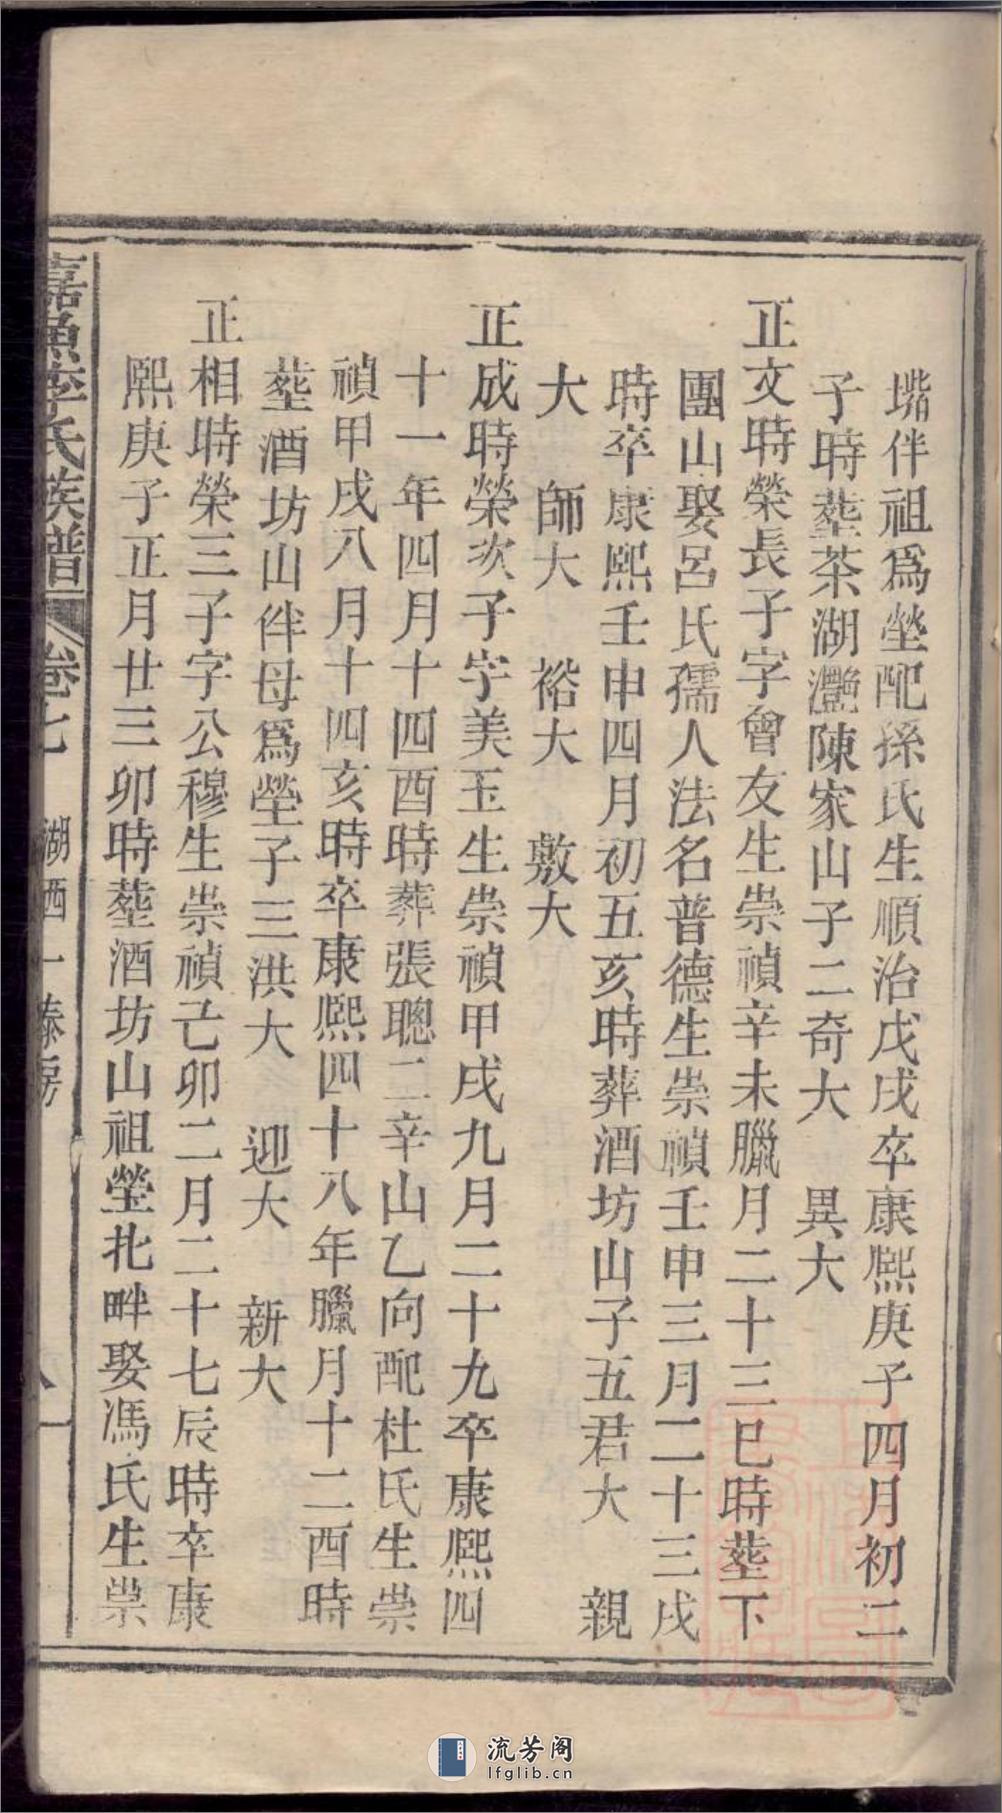 嘴伴祖爲塋配孫氏生順治戊戌卒康熙庚子四月初二
子時塟茶湖灔陳家山子二奇大　異大
正文時榮長子字會友生崇禎辛未臘月二十三巳時塟下
團山娶呂氏孺人法名普德生崇禎壬申三月二十三戌
時卒康熙壬申四月初五亥時葬酒坊山子五君大　親
大　師大　裕大　敷大
正成時榮次子字美玉生崇禎甲戌九月二十九卒康熙四
十一年四月十四酉時葬張聰二辛山乙向配杜氏生崇
禎甲戌八月十四亥時卒康熙四十八年臘月十二酉時
塟酒坊山伴母爲塋子三洪大　迎大　新大
正相時榮三子字公穆生崇禎己卯二月二十七辰時卒康
熙庚子正月廿三卯時塟酒坊山祖塋北畔娶馮氏生崇
嘉魚李氏族譜　卷七　湖西一　房
流芳阁
lfglib.cn